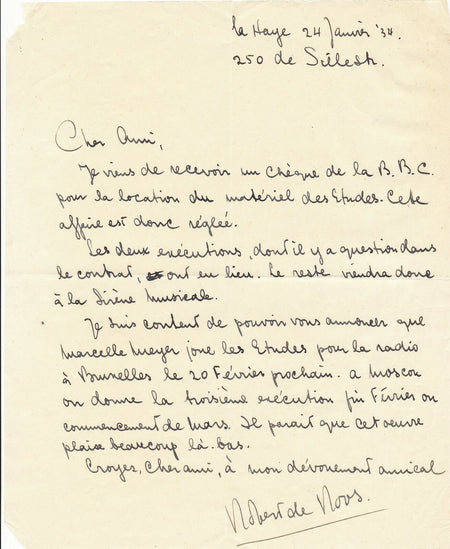 la Haye 24 Janvier '34.
250 de Sillestr.
Cher Ami,
Je viens de recevoir un chèque de la B.B.C.
pour la location du matériel des Etudes. Cette
affaire est donc réglée.
Les deux exécutions, dont il y a question dans
le contrat, ont eu lieu. Le reste viendra donc
à la Sirène Musicale.
Je suis content de pouvoir vous annoncer que
Marcelle Meyer joue les Etudes pour la radio
à Bruxelles le 20 Février prochain. a Moscou
on donne la troisième exécution fin Février ou
commencement de Mars. Il parait que cet oeuvre
plaise beaucoup là-bas.
Croyez, cher ami, à mon dévouement amical
Robert de Roos.